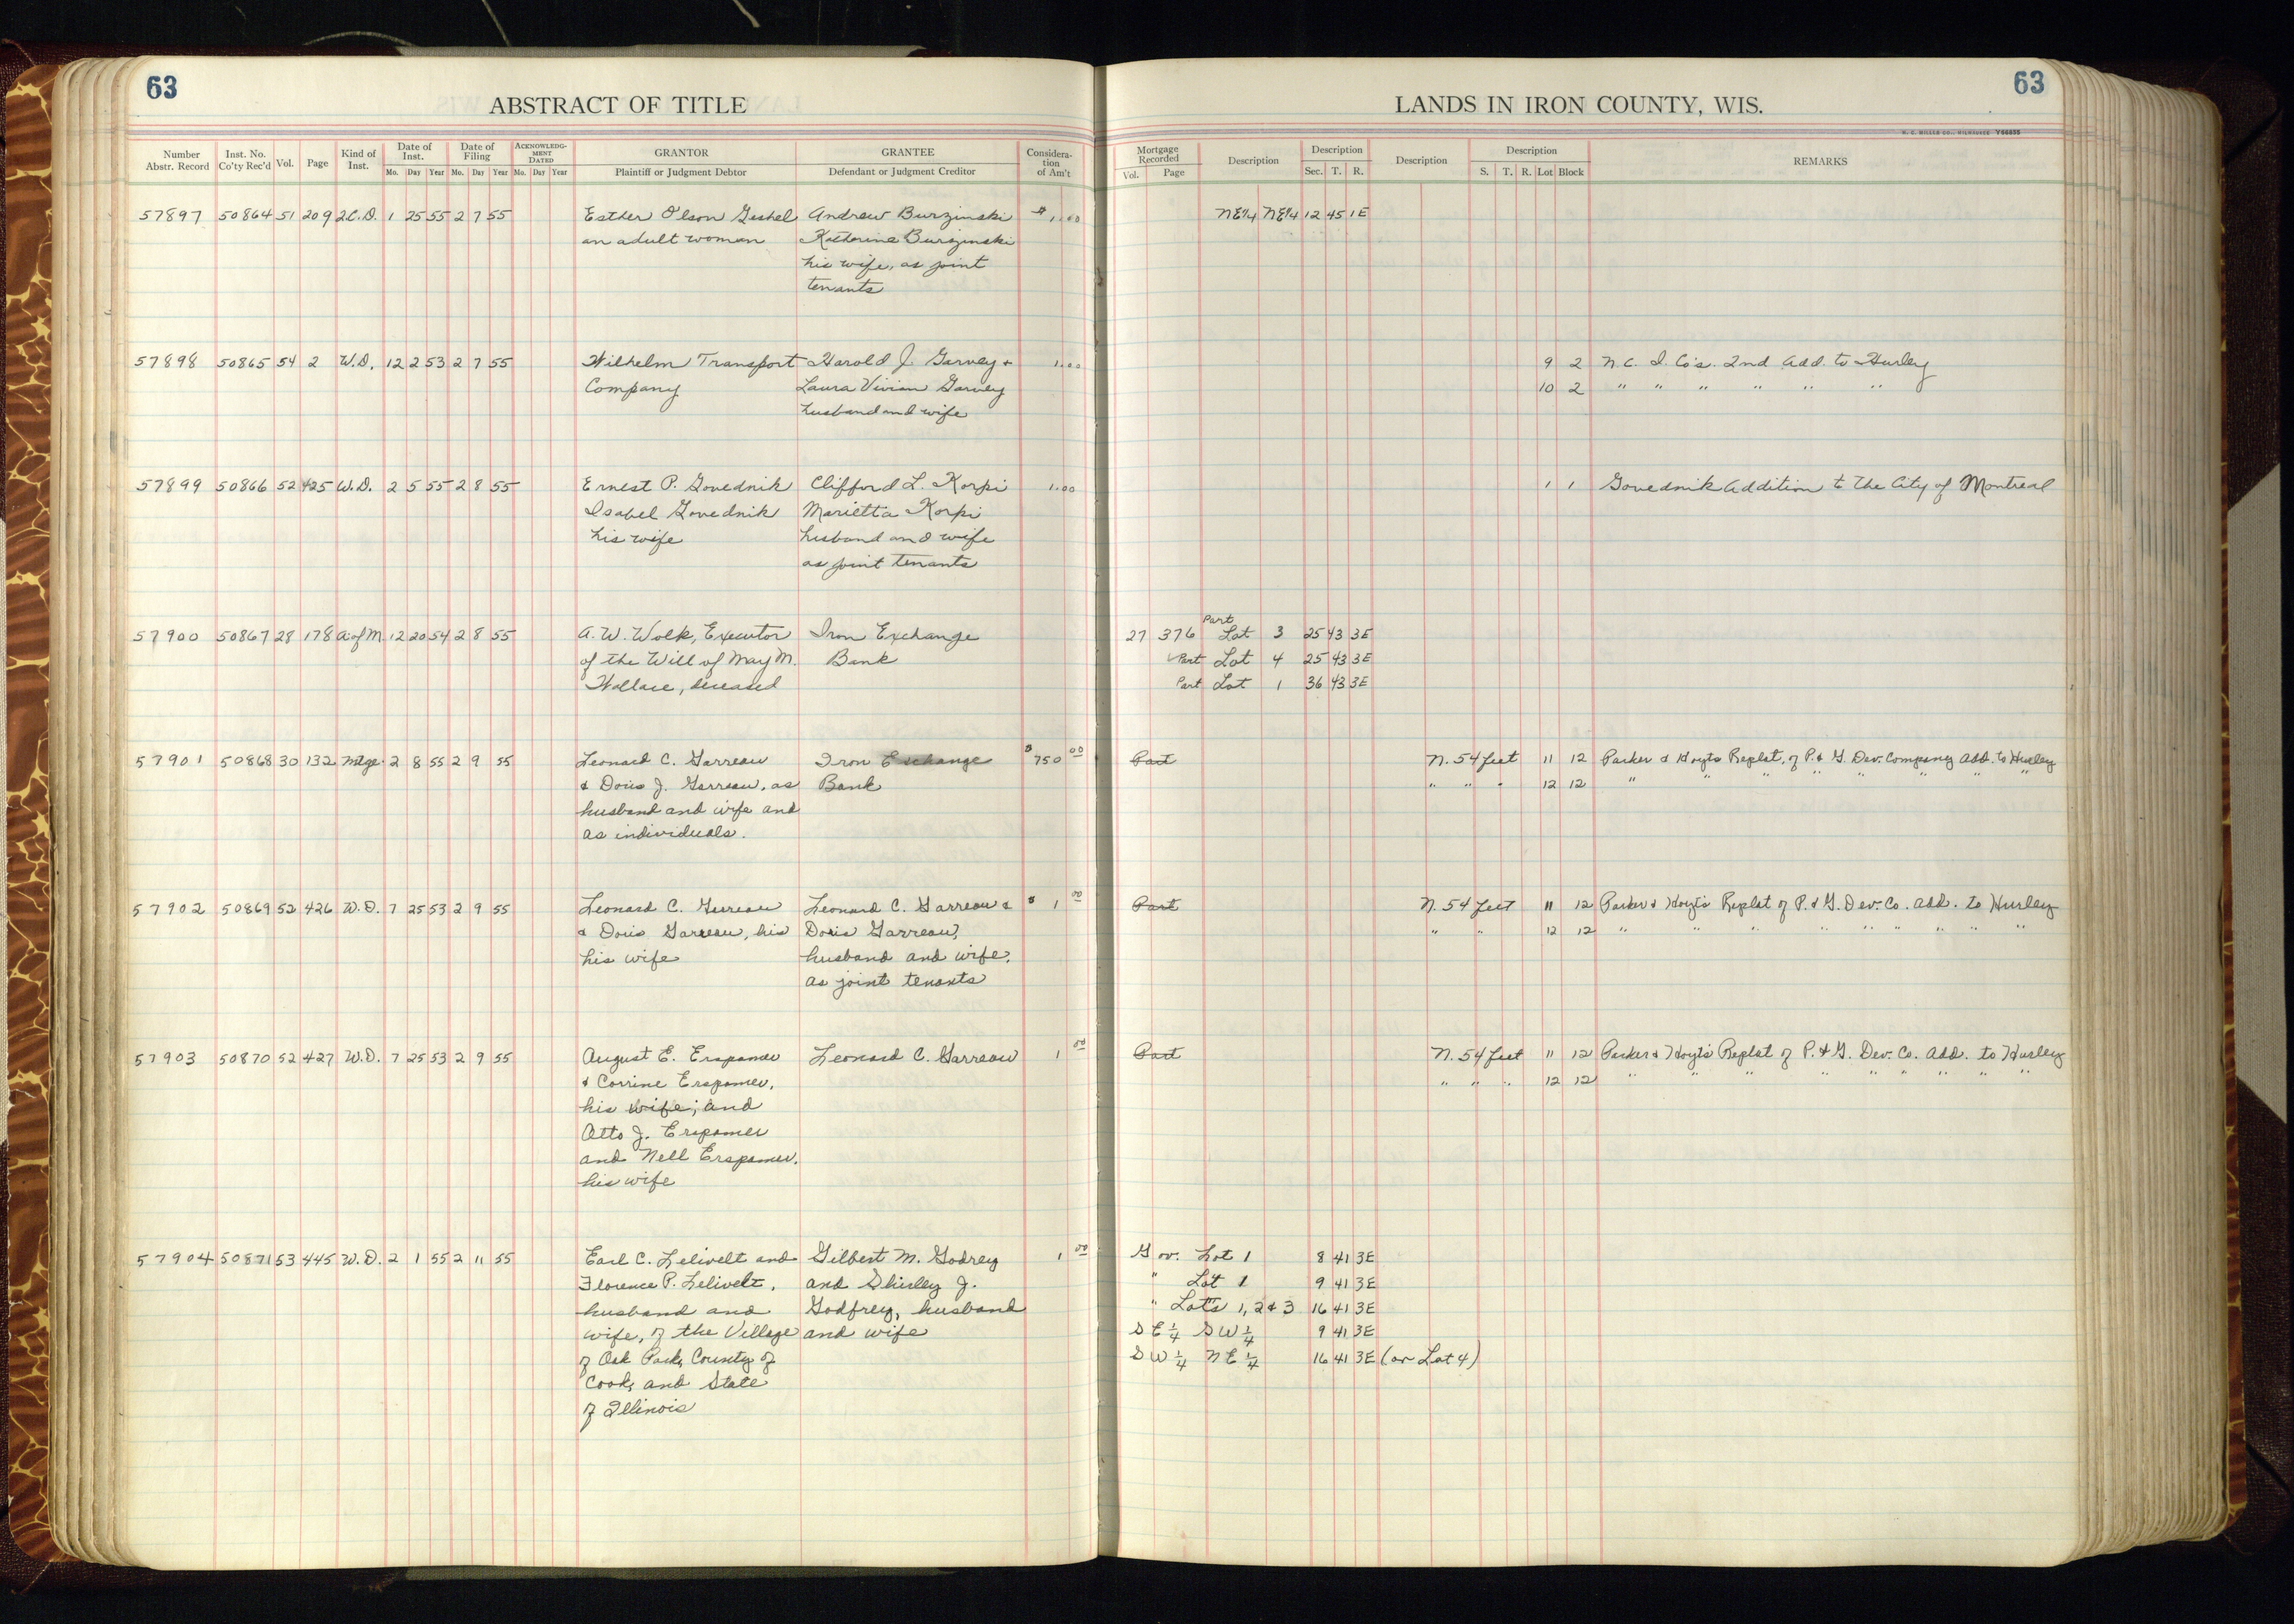 63
63
ABSTRACT OF TITLE
LANDS IN IRON COUNTY, WIS.
H. C. MILLER CO., MILWAUKEE Y98855
Number Abstr. Record Inst. No. Co'ty Rec'd Vol. Page Kind of Inst. Date of Inst. Mo. Day Year Date of Filing Mo. Day Year ACKNOWLEDGMENT DATED Mo. Day Year GRANTOR Plaintiff or Judgment Debtor GRANTEE Defendant or Judgment Creditor Consideration of Am't
Mortgage Recorded Vol. Page Description Description Sec. T. R. Description Description S. T. R. Lot Block REMARKS
57897 50864 51 209 2C.D. 1 25 55 2 7 55 Esther Olson Andrew Burzinski $1.00 NE1/4 NE1/4 12 45 1E
an adult woman Katherine Burzinski
his wife, as joint
tenants
57898 50865 54 2 W.D. 12 2 53 2 7 55 Wilhelm Transport Harold J. Garvey + 1.00 9 2 N.C. I. Co's. 2nd Add. to Hurley
Company Laura Vivian Garvey 10 2 " " " " " "
husband and wife
57899 50866 52 425 W.D. 2 5 55 2 8 55 Ernest P. Govednik Clifford L. Korpi 1.00 1 1 Govednik Addition to The City of Montreal
Isabel Govednik Marietta Korpi
his wife husband and wife
as joint tenants
57900 50867 28 178 A of M 12 20 54 2 8 55 A. W. Wolk, Executor Iron Exchange 27 376 Part Lot 3 25 43 3E
of the Will of May M. Bank Part Lot 4 25 43 3E
Wallace, deceased Part Lot 1 36 43 3E
57901 50868 30 132 Mtge. 2 8 55 2 9 55 Leonard C. Garreau Iron Exchange $750 00 Part N. 54 feet 11 12 Parker & Hoyts Replat. of P. & G. Dev. Company Add. to Hurley
& Doris J. Garreau, as Bank " " " 12 12 " " " " " " " "
husband and wife and
as individuals.
57902 50869 52 426 W.D. 7 25 53 2 9 55 Leonard C. Garreau Leonard C. Garreau & $1 00 Part N. 54 feet 11 12 Parker & Hoyt's Replat of P. & G. Dev. Co. Add. to Hurley
& Doris Garreau, his Doris Garreau, " " 12 12 " " " " " " " " "
his wife husband and wife,
as joint tenants
57903 50870 52 427 W.D. 7 25 53 2 9 55 August E. Erspamer Leonard C. Garreau 1 00 Part N. 54 feet 11 12 Parker & Hoyt's Replat of P. & G. Dev. Co. Add. to Hurley
& Corrine Erspamer, " " " 12 12 " " " " " " " " "
his wife; and
Atto J. Erspamer
and Nell Erspamer,
his wife
57904 50871 53 445 W.D. 2 1 55 2 11 55 Earl C. Lelivelt and Gilbert M. Godrey 1 00 Gov. Lot 1 8 41 3E
Florence P. Lelivelt, and Shirley J. " Lot 1 9 41 3E
husband and Godfrey, husband " Lots 1, 2 & 3 16 41 3E
wife, of the Village and wife SE 1/4 SW 1/4 9 41 3E
of Oak Park, County of SW 1/4 NE 1/4 16 41 3E (or Lot 4)
Cook, and State
of Illinois